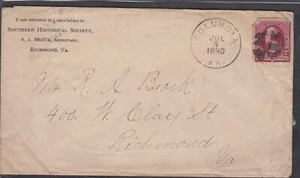 If not delivered in 5 days return to
SOUTHERN HISTORICAL SOCIETY,
R. A. BROCK, SECRETARY,
RICHMOND, VA.
COLUMBIA
JUL
1890
VA.
Mr R. A Brock
400 W. Clay St
Richmond
Va